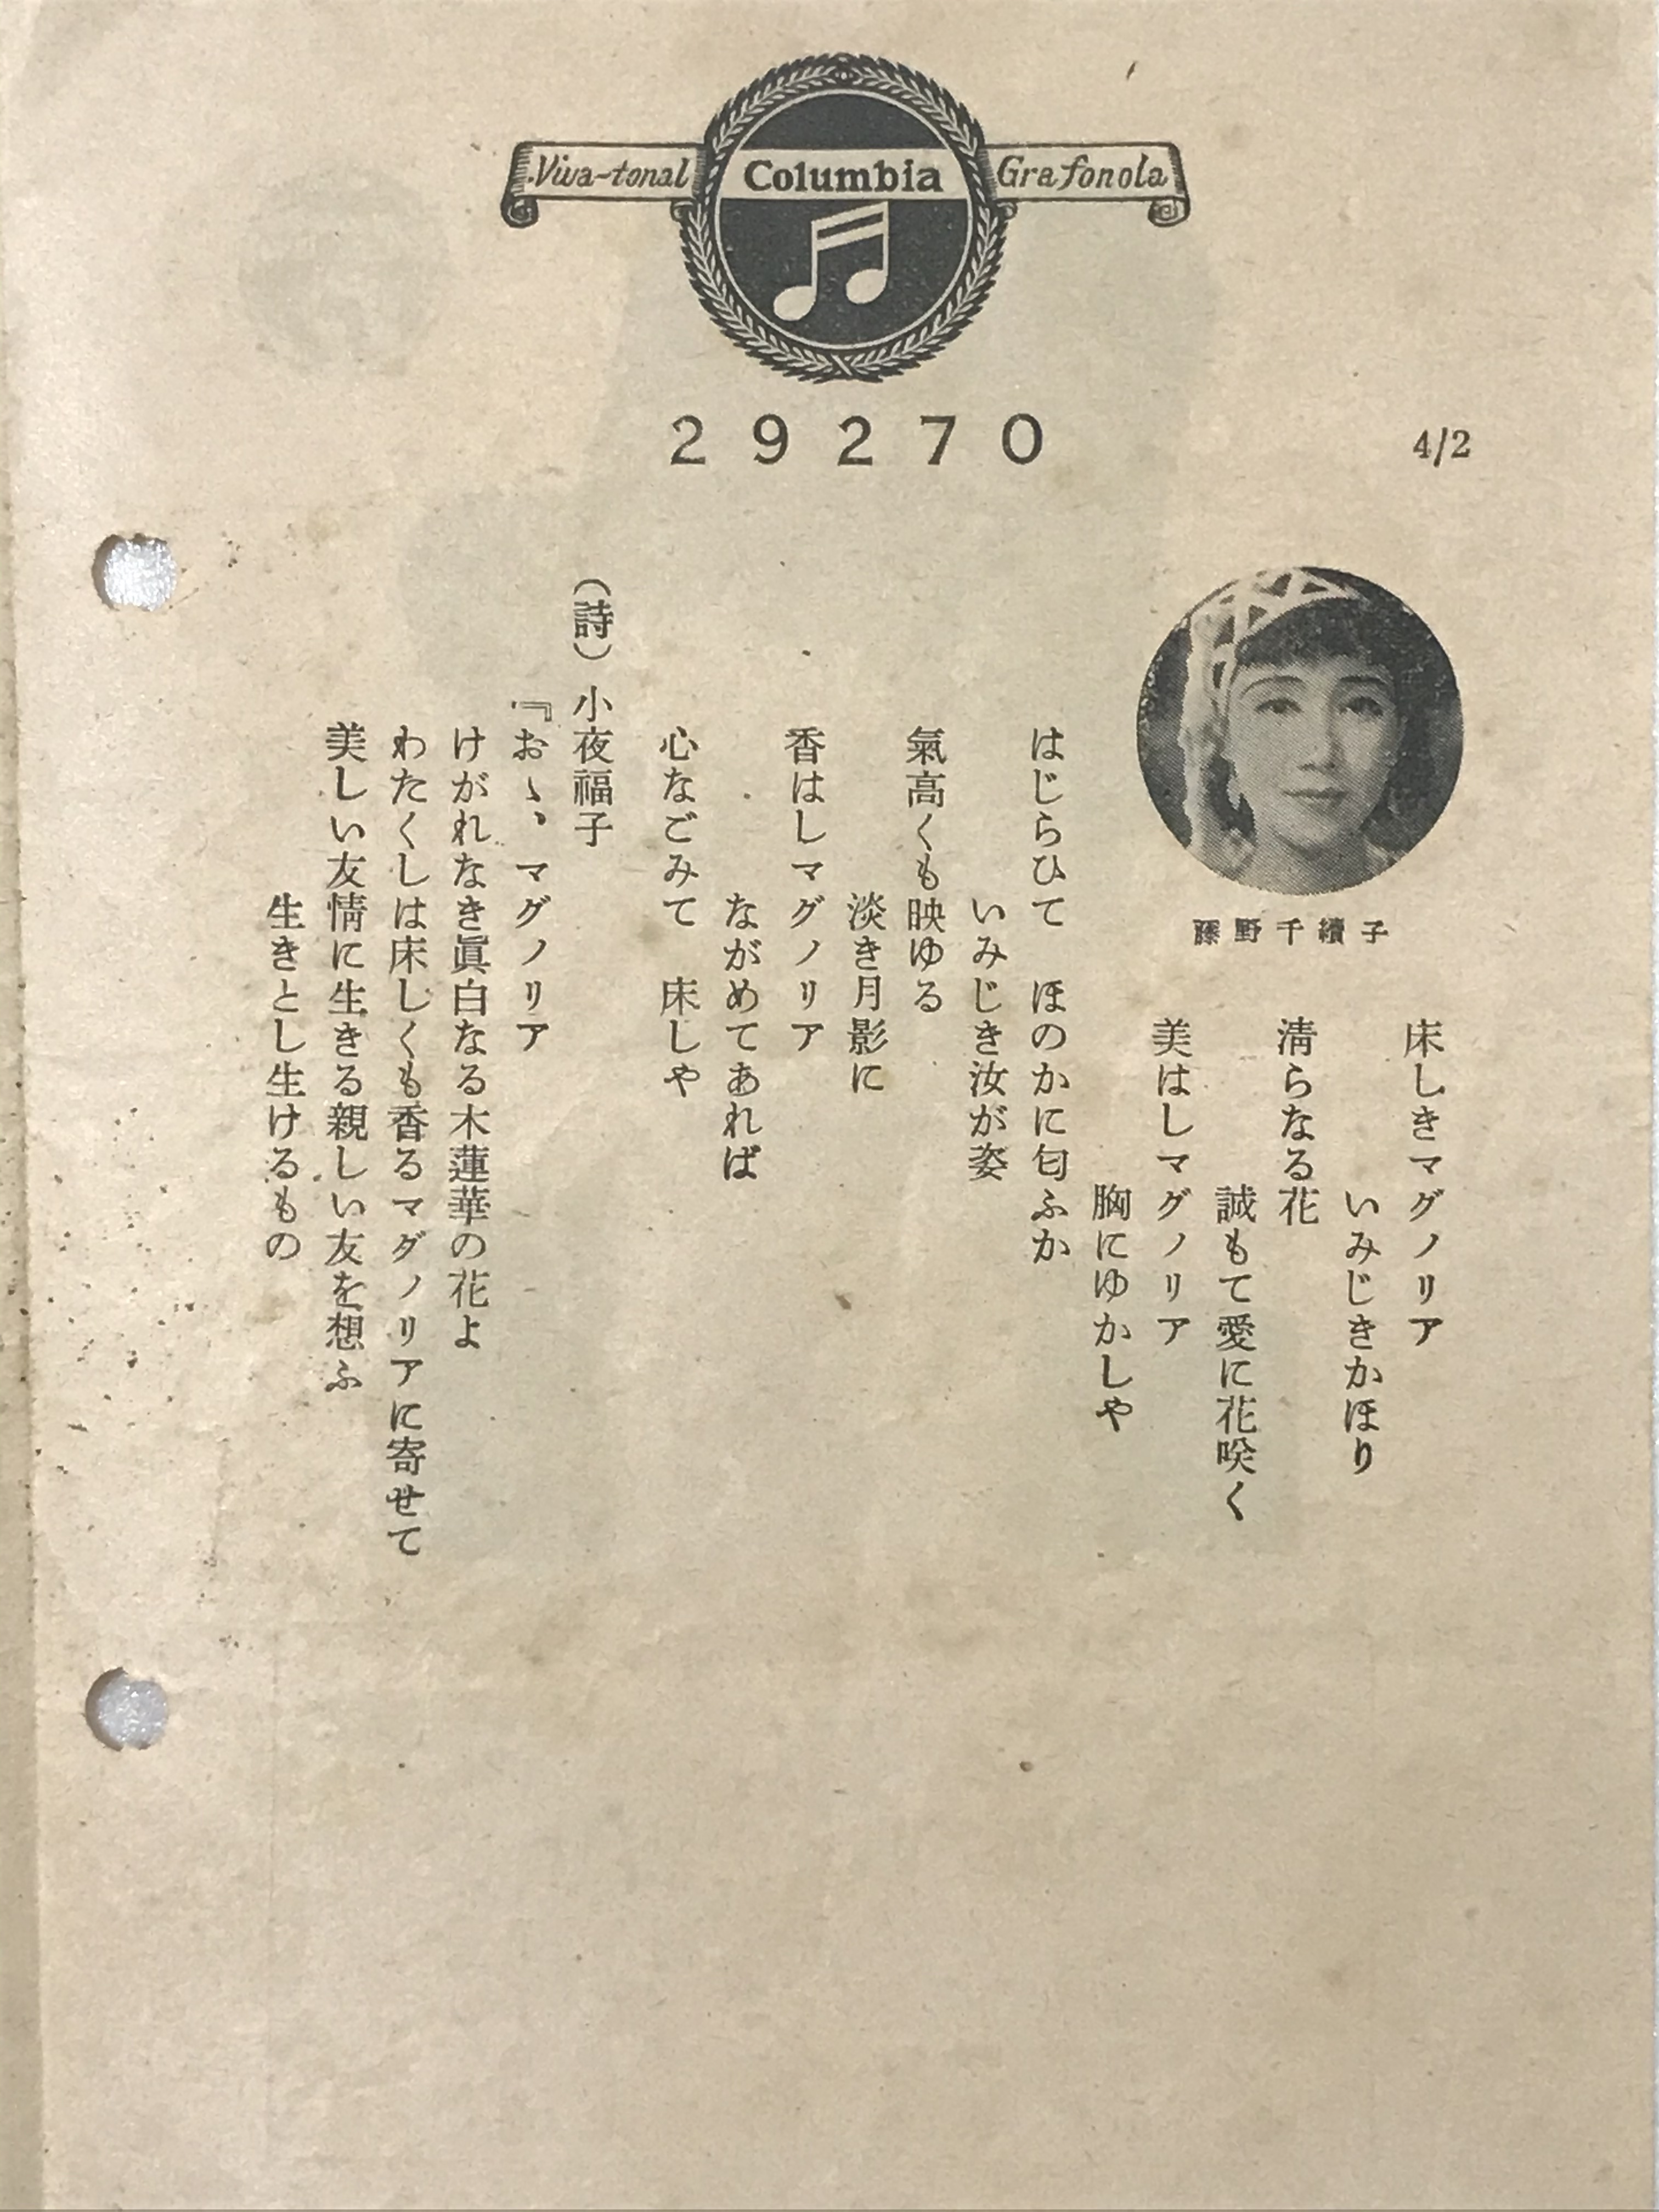 Viva-tonal Columbia Grafonola
29270
4/2
藤野千續子
床しきマグノリア
いみじきかほり
淸らなる花
誠もて愛に花咲く
美はしマグノリア
胸にゆかしや
はじらひて　ほのかに匂ふか
いみじき汝が姿
氣高くも映ゆる
淡き月影に
香はしマグノリア
ながめてあれば
心なごみて　床しや
（詩）小夜福子
『おゝ、マグノリア
けがれなき眞白なる木蓮華の花よ
わたくしは床しくも香るマグノリアに寄せて
美しい友情に生きる親しい友を想ふ
生きとし生けるもの